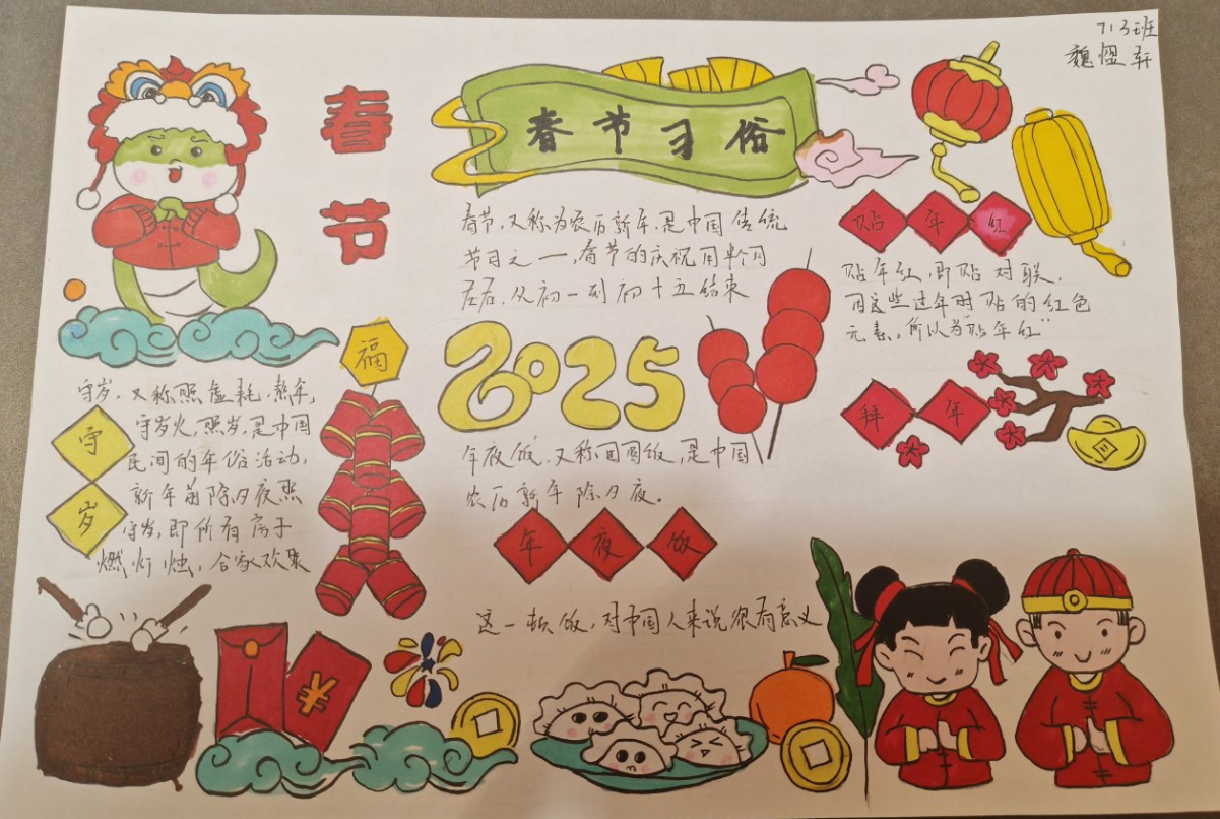 713班
魏愠轩
春节
春节习俗
春节,又称为农历新年,是中国传统
节日之一,春节的庆祝用半个月
左右,从初一到初十五结束
贴年红
贴年红,即贴对联.
因这些过年时贴的红色
元素,所以为"贴年红"
福
2025
拜年
守岁,又称照虚耗,熬年,
守岁火,照岁,是中国
民间的年俗活动,
新年前除夕夜熬
守岁,即所有房子
燃灯烛,合家欢聚
守岁
年夜饭,又称团圆饭,是中国
农历新年除夕夜。
年夜饭
这一顿饭,对中国人来说很有意义
¥